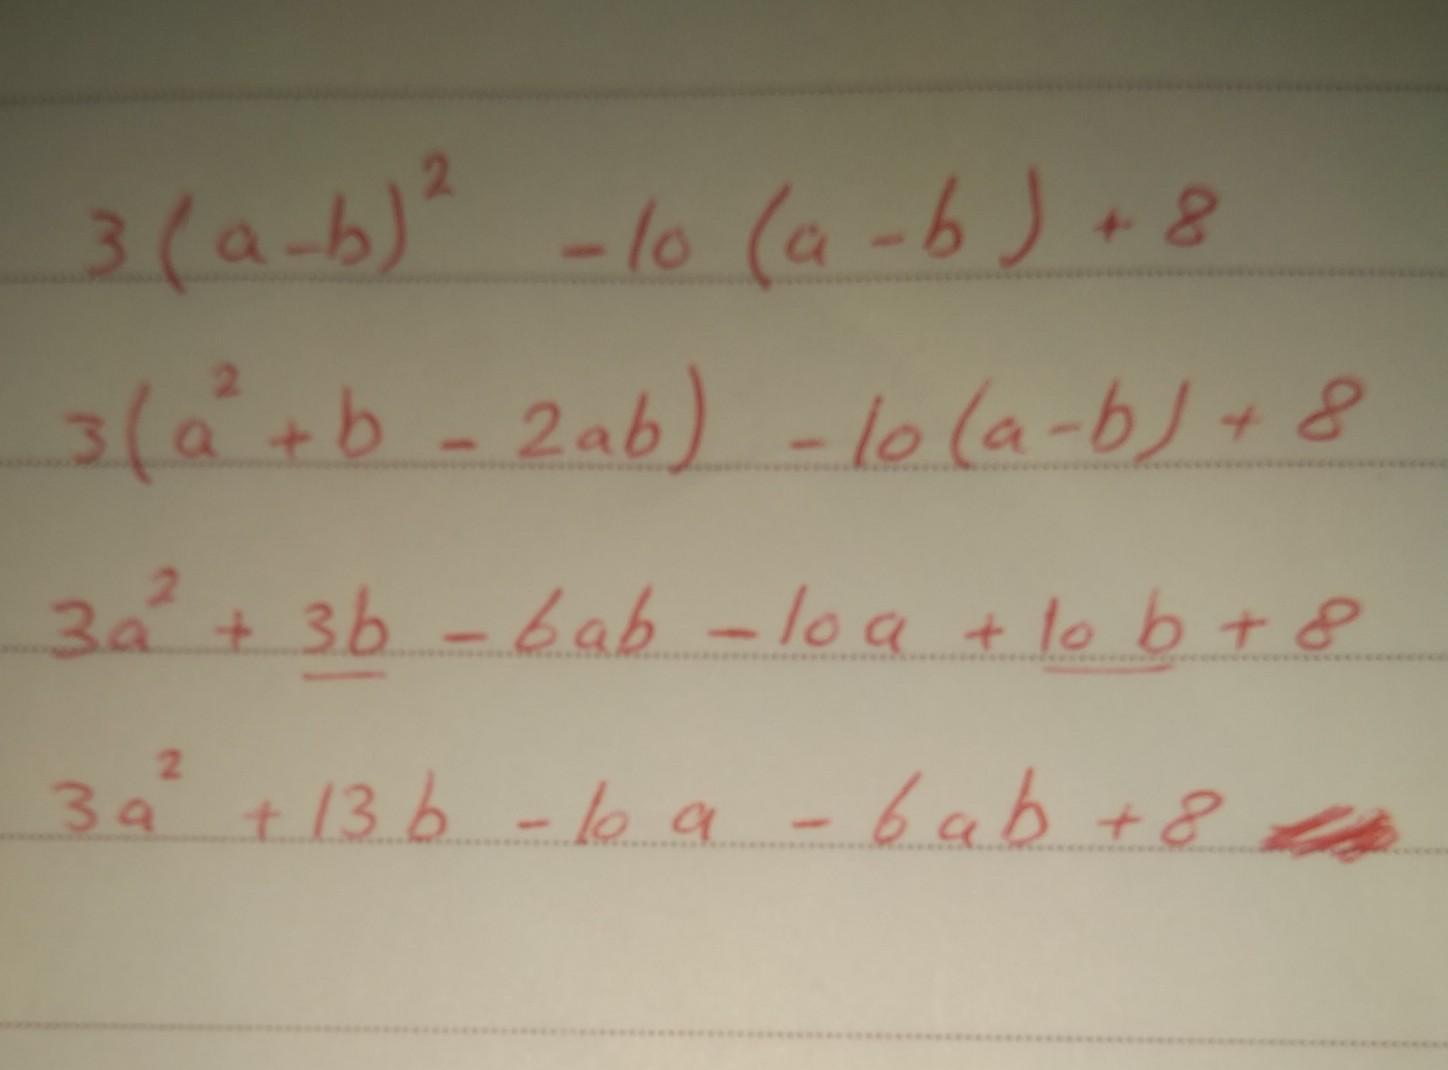 3(a-b)² -10 (a-b) + 8
3(a² + b - 2ab) -10(a-b) + 8
3a² + 3b - 6ab - 10a + 10b + 8
3a² + 13b - 10a - 6ab + 8